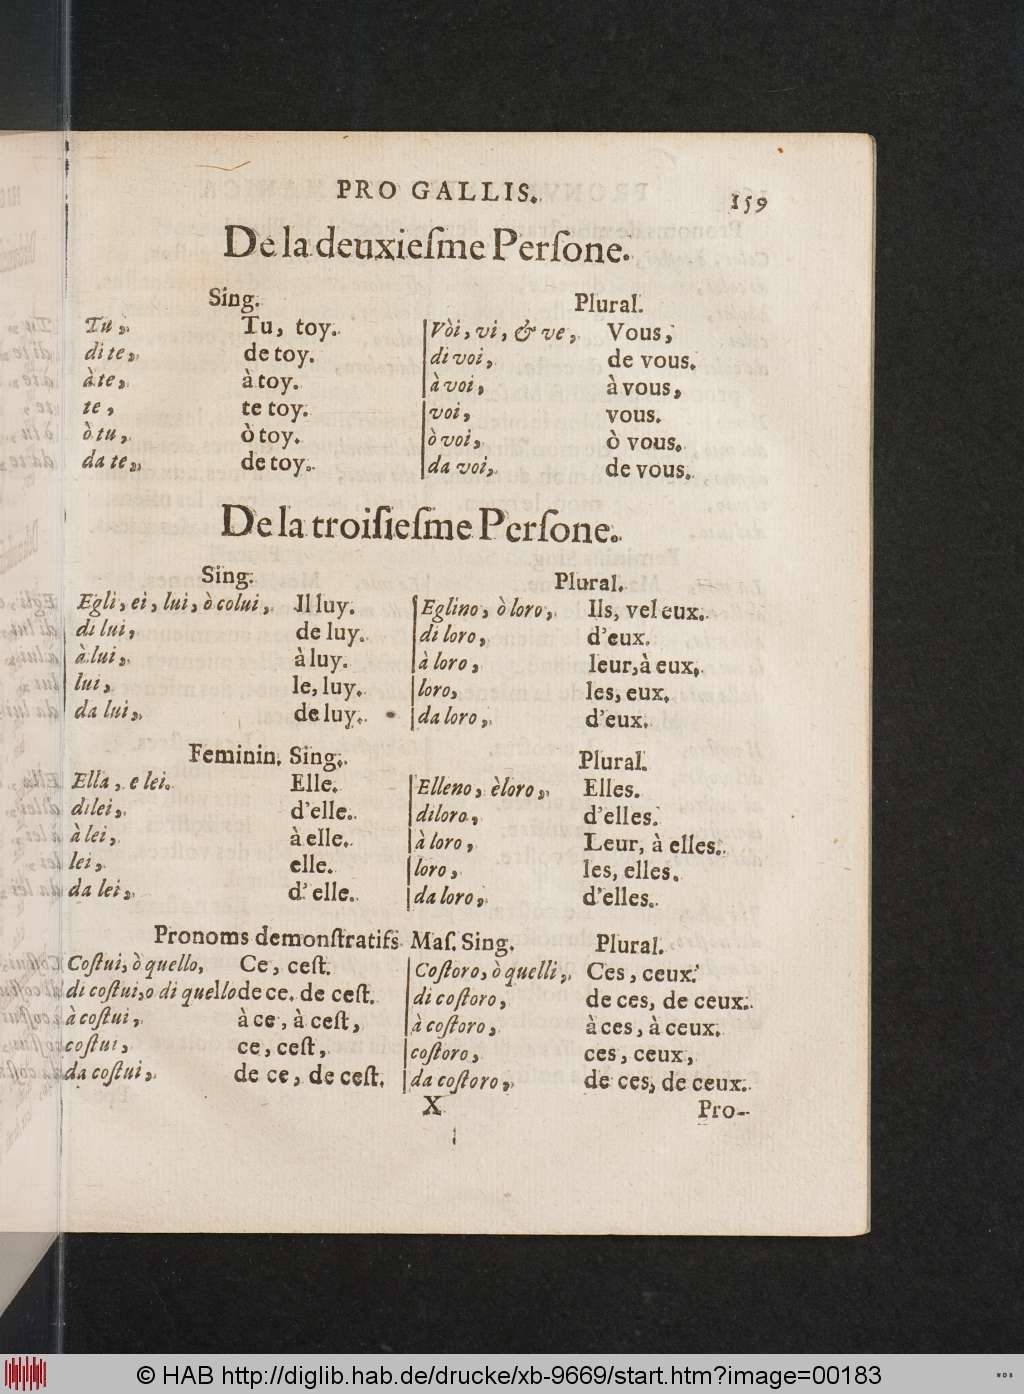 PRO GALLIS.
159
De la deuxieſme Perſone.
Sing. Plural.
Tu, Tu, toy. Vòi, vi, & ve, Vous,
di te, de toy. di voi, de vous.
à te, à toy. à voi, à vous,
te, te toy. voi, vous.
ò tu, ò toy. ò voi, ò vous.
da te, de toy. da voi, de vous.
De la troiſieſme Perſone.
Sing. Plural.
Egli, ei, lui, ò colui, Il luy. Eglino, ò loro, Ils, vel eux.
di lui, de luy. di loro, d'eux.
à lui, à luy. à loro, leur, à eux,
lui, le, luy. loro, les, eux.
da lui, de luy. da loro, d'eux.
Feminin. Sing. Plural.
Ella, e lei. Elle. Elleno, è loro, Elles.
di lei, d'elle. di loro, d'elles.
à lei, à elle. à loro, Leur, à elles.
lei, elle. loro, les, elles.
da lei, d'elle. da loro, d'elles.
Pronoms demonſtratifs Maſ. Sing. Plural.
Coſtui, ò quello, Ce, ceſt. Coſtoro, ò quelli, Ces, ceux.
di coſtui, o di quello de ce. de ceſt. di coſtoro, de ces, de ceux.
à coſtui, à ce, à ceſt, à coſtoro, à ces, à ceux.
coſtui, ce, ceſt, coſtoro, ces, ceux,
da coſtui, de ce, de ceſt. da coſtoro, de ces, de ceux.
X Pro-
© HAB http://diglib.hab.de/drucke/xb-9669/start.htm?image=00183